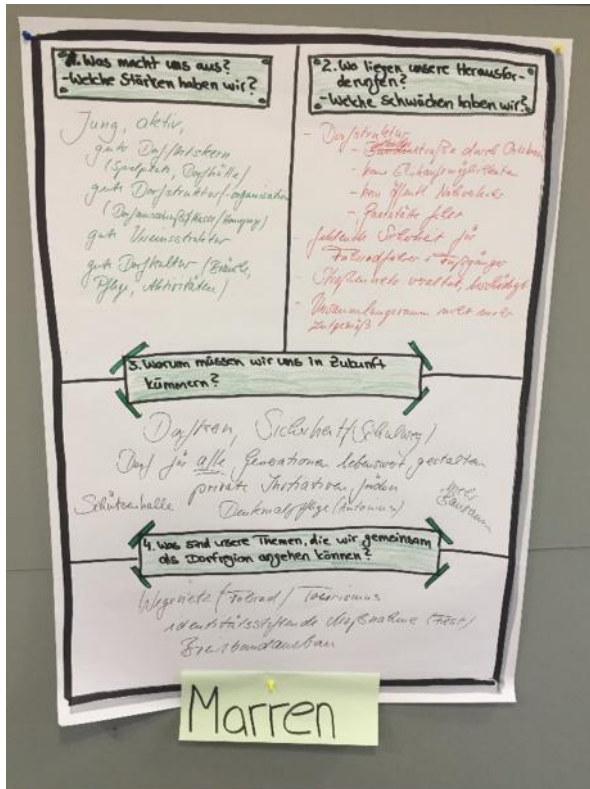 1. Was macht uns aus?
-Welche Stärken haben wir?
Jung, aktiv,
gute Dorfortskern
(Spielplatz, Dorfhütte)
gute Dorfstruktur/-organisation
(Dorfausschuß/Kasse/Homepage)
gute Vereinsstruktur
gute Dorfkultur (Bräuche,
Pflege, Aktivitäten)
2. Wo liegen unsere Herausfor-
derungen?
-Welche Schwächen haben wir?
- Dorfstruktur
- straße durch Ortskern
- keine Einkaufsmöglichkeiten
- kein öffentl. Nahverkehr
- Gaststätte fehlt
- fehlende Sicherheit für
Fahrradfahrer + Fußgänger
- Straßennetz veraltet, beschädigt
- Versammlungsraum nicht mehr
zeitgemäß
3. Warum müssen wir uns in Zukunft
kümmern?
Dorfkern, Sicherheit (Schulweg)
Dorf für alle Generationen lebenswert gestalten
private Initiativen finden
Schützenhalle
Denkmalpflege
Bauraum
4. Was sind unsere Themen, die wir gemeinsam
als Dorfregion angehen können?
Wegenetz (Fahrrad/Tourismus
identitätsstiftende Maßnahme (Fest)
Breitbandausbau
Marren